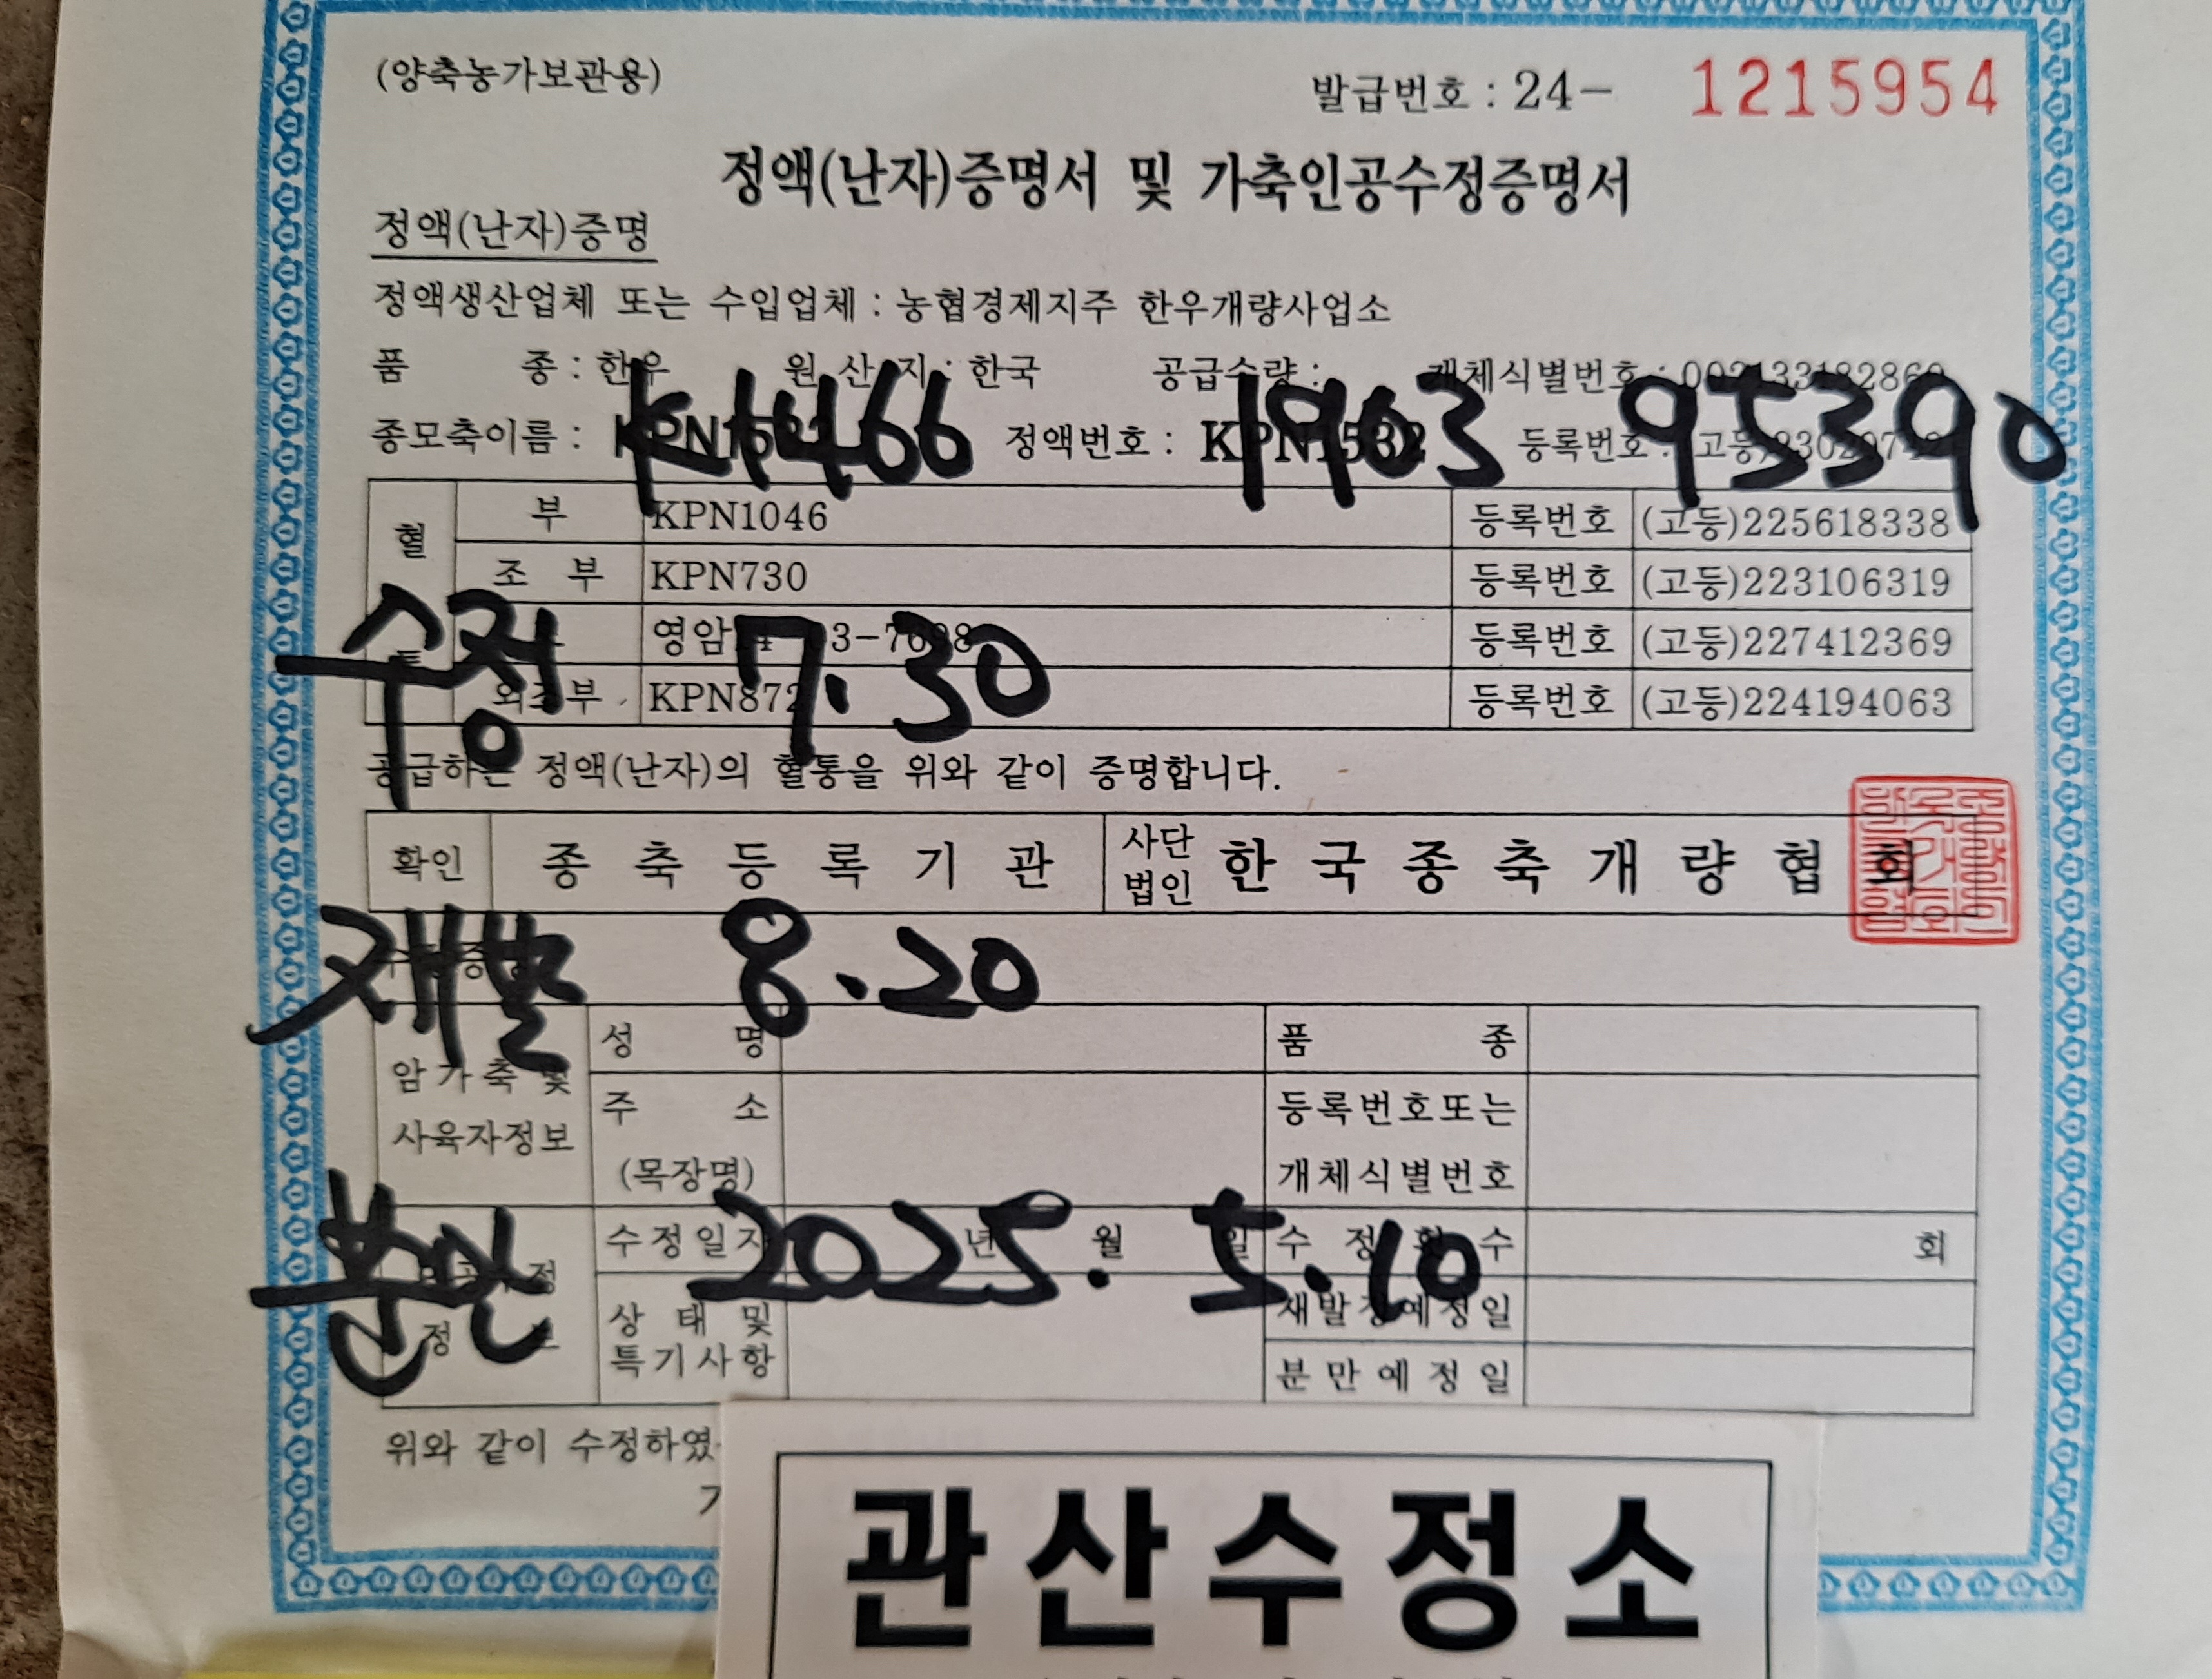 (양축농가보관용)
발급번호 : 24- 1215954
정액(난자)증명서 및 가축인공수정증명서
정액(난자)증명
정액생산업체 또는 수입업체 : 농협경제지주 한우개량사업소
품 종 : 한우 원 산 지 : 한국 공급수량 : 개체식별번호 :
K1466 1903 95390
종모축이름 : 정액번호 : 등록번호 :
혈 부 KPN1046 등록번호 (고등)225618338
조 부 KPN730 등록번호 (고등)223106319
통 영암 등록번호 (고등)227412369
수정 7.30
외조부 KPN872 등록번호 (고등)224194063
공급하는 정액(난자)의 혈통을 위와 같이 증명합니다.
확인 종축등록기관 사단법인 한국종축개량협회
재발 8.20
암가축 및 사육자정보 성 명 품 종
주 소 (목장명) 등록번호또는 개체식별번호
분만 2025. 5.10
수정일자 년 월 일 수정횟수 회
정 보 상태 및 특기사항 재발정예정일
분만예정일
위와 같이 수정하였
관산수정소